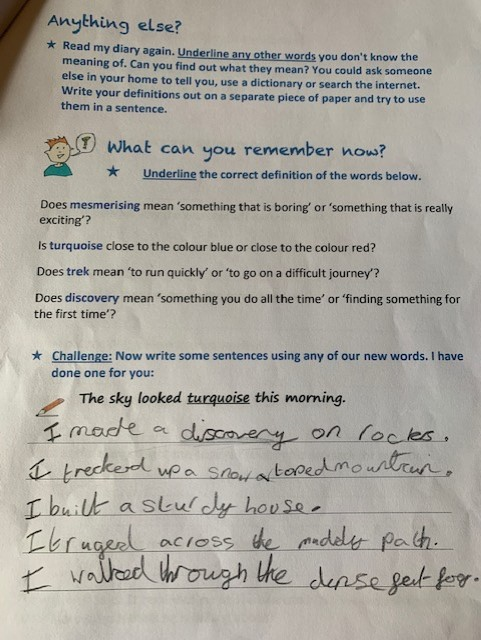 Anything else?
★ Read my diary again. Underline any other words you don't know the
meaning of. Can you find out what they mean? You could ask someone
else in your home to tell you, use a dictionary or search the internet.
Write your definitions out on a separate piece of paper and try to use
them in a sentence.
?
What can you remember now?
★ Underline the correct definition of the words below.
Does mesmerising mean 'something that is boring' or 'something that is really
exciting'?
Is turquoise close to the colour blue or close to the colour red?
Does trek mean 'to run quickly' or 'to go on a difficult journey'?
Does discovery mean 'something you do all the time' or 'finding something for
the first time'?
★ Challenge: Now write some sentences using any of our new words. I have
done one for you:
The sky looked turquoise this morning.
I made a discovery on rocks.
I treckerd up a snow
I built a sturdy house.
I truged across the path.
I walked through the dense fog.